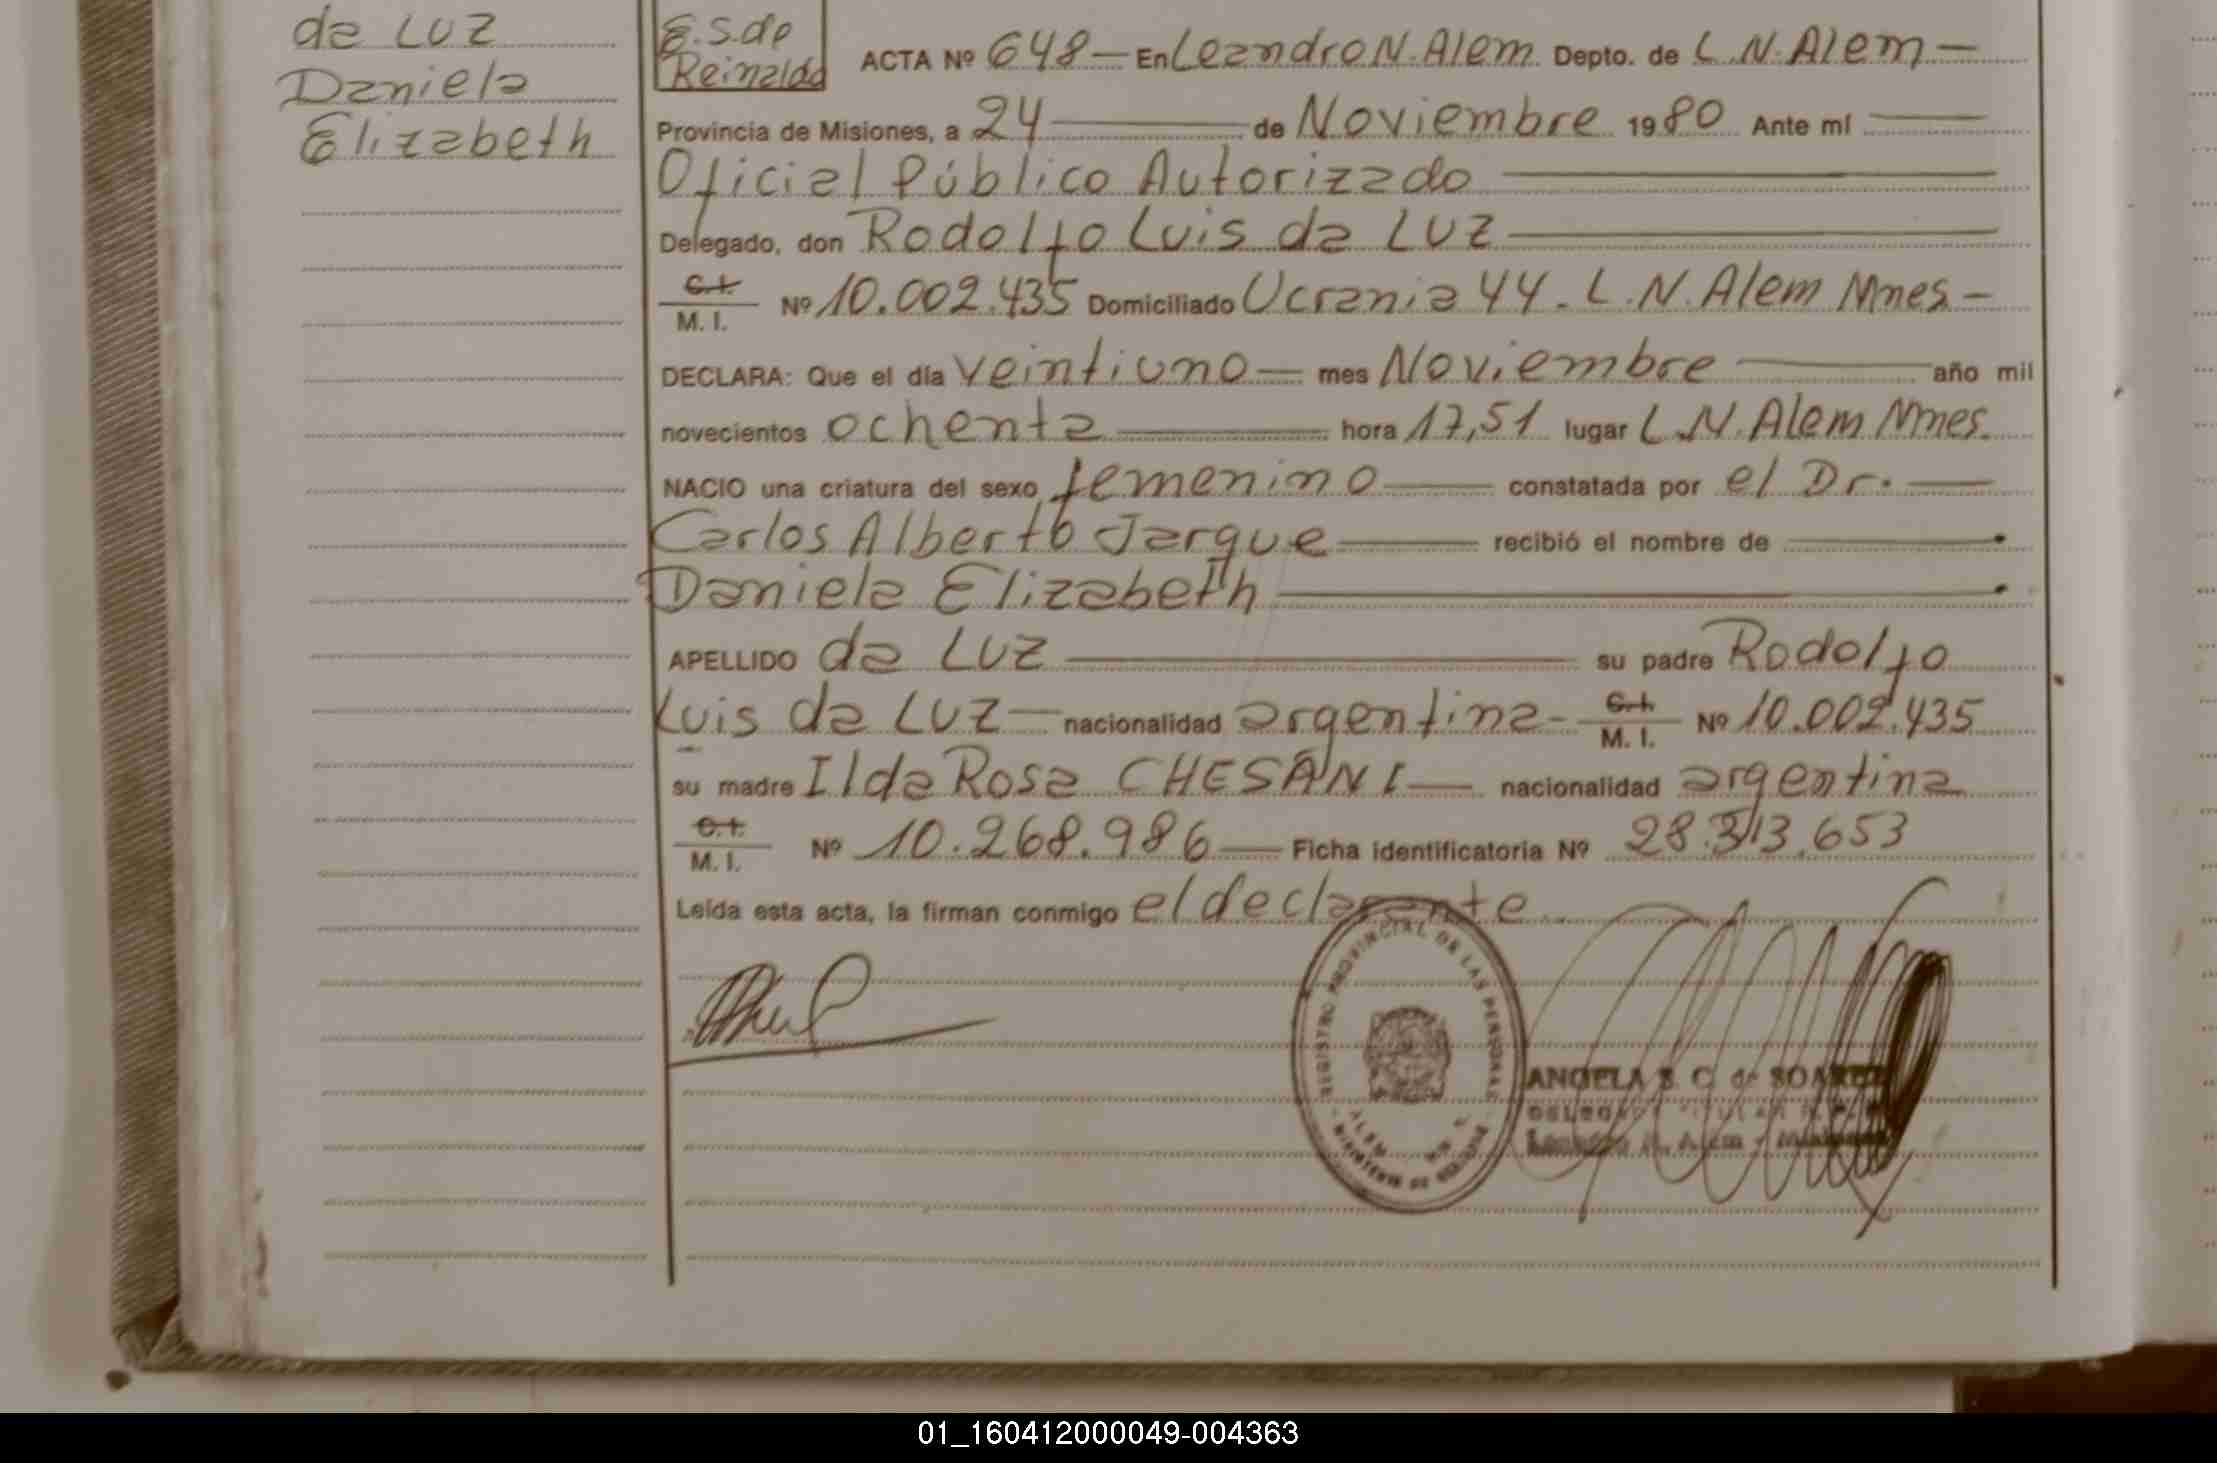 da LUZ
Daniela
Elizabeth
E.S.do
Reinaldo
ACTA Nº 648 — En Leandro N. Alem Depto. de L.N. Alem —
Provincia de Misiones, a 24 — de Noviembre 1980 Ante mí —
Oficial Público Autorizado —
Delegado, don Rodolfo Luis da LUZ —
C.I.
M. I. Nº 10.002.435 Domiciliado Ucrania 44 - L.N. Alem Mnes -
DECLARA: Que el día veintiuno — mes Noviembre — año mil
novecientos ochenta — hora 17,51 lugar L.N. Alem Mnes.
NACIO una criatura del sexo femenino — constatada por el Dr. —
Carlos Alberto Jarque — recibió el nombre de —
Daniela Elizabeth —
APELLIDO da LUZ — su padre Rodolfo
Luis da LUZ — nacionalidad argentina - C.I. M. I. Nº 10.002.435
su madre Ilda Rosa CHESANI — nacionalidad argentina
C.I.
M. I. Nº 10.268.986 — Ficha identificatoria Nº 28.313.653
Leída esta acta, la firman conmigo el declarante
REGISTRO PROVINCIAL DE LAS PERSONAS
ALEM
MINISTERIO DE
ANGELA S. C. de SOAREZ
DELEGADA TITULAR
Leandro N. Alem - Misiones
01_160412000049-004363